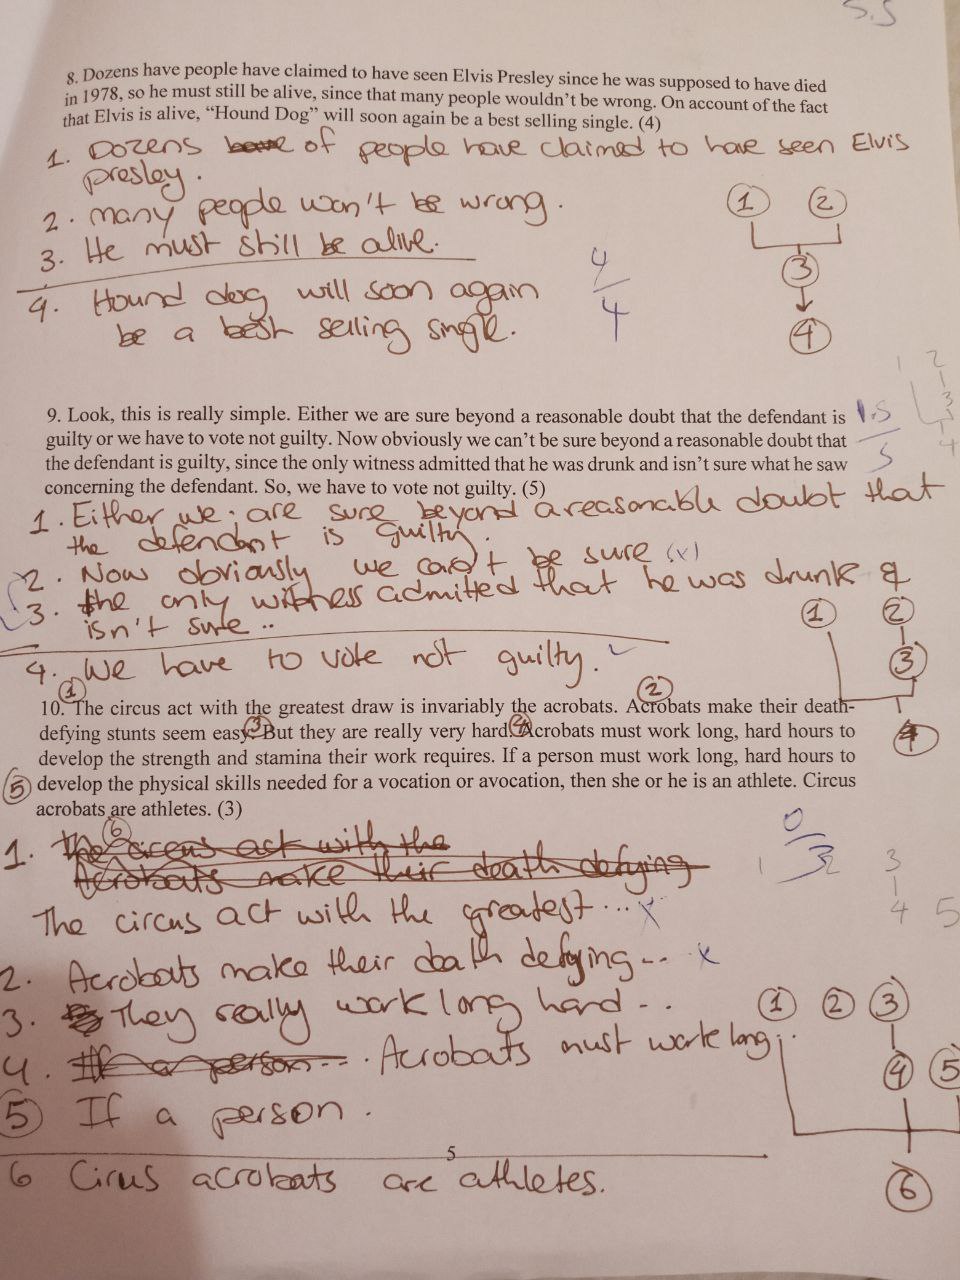 5.5
8. Dozens have people have claimed to have seen Elvis Presley since he was supposed to have died
in 1978, so he must still be alive, since that many people wouldn't be wrong. On account of the fact
that Elvis is alive, "Hound Dog" will soon again be a best selling single. (4)
1. Dozens of people have claimed to have seen Elvis
presley.
2. many people won't be wrong.
3. He must still be alive.
4. Hound dog will soon again
be a best selling single.
4/4
1 2
3
4
1 2
3
4
9. Look, this is really simple. Either we are sure beyond a reasonable doubt that the defendant is
guilty or we have to vote not guilty. Now obviously we can't be sure beyond a reasonable doubt that
the defendant is guilty, since the only witness admitted that he was drunk and isn't sure what he saw
concerning the defendant. So, we have to vote not guilty. (5)
1.5/5
1. Either we are sure beyond a reasonable doubt that
the defendant is guilty.
2. Now obviously we can't be sure (x)
3. the only witness admitted that he was drunk &
isn't sure ..
4. We have to vote not guilty.
1 2
3
4
1 2
10. The circus act with the greatest draw is invariably the acrobats. Acrobats make their death-
defying stunts seem easy. But they are really very hard. Acrobats must work long, hard hours to
3 4
develop the strength and stamina their work requires. If a person must work long, hard hours to
5 develop the physical skills needed for a vocation or avocation, then she or he is an athlete. Circus
acrobats are athletes. (3)
6
1. The circus act with the
Acrobats make their death defying
0/3
1 2 3
4 5
The circus act with the greatest ... x
2. Acrobats make their death defying ... x
3. They really work long hard - ..
4. If a person --- . Acrobats must work long ...
5 If a person .
1 2 3
4 5
6
5
6 Cirus acrobats are athletes.